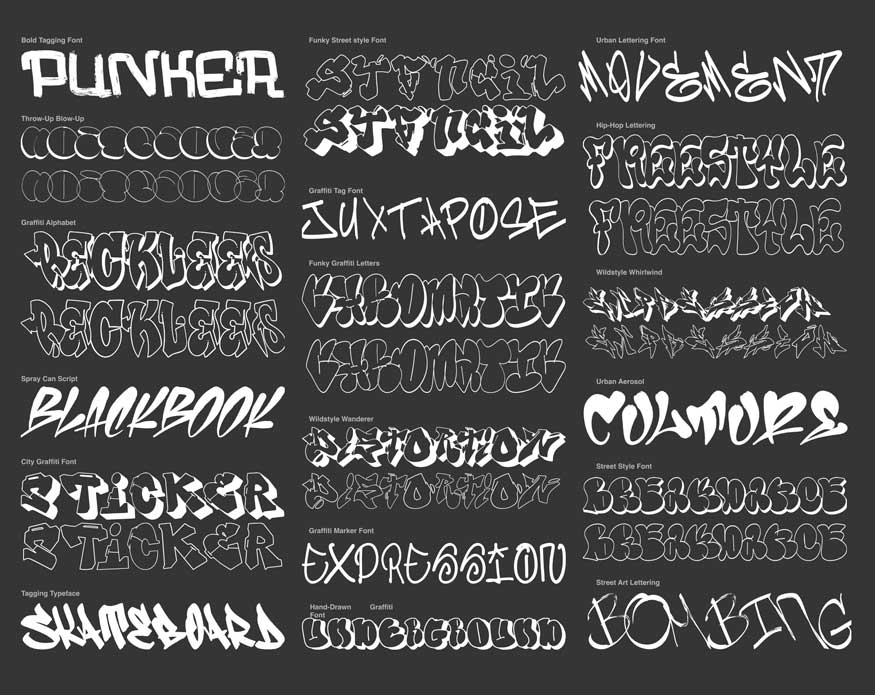 Bold Tagging Font
PUNKER
Throw-Up Blow-Up
Graffiti Alphabet
RECKLEEES
RECKLEEES
Spray Can Script
BLACKBOOK
City Graffiti Font
STiCKER
STiCKER
Tagging Typeface
SKATEBOARD
Funky Street style Font
STENCiL
STENCiL
Graffiti Tag Font
JUXTAPOSE
Funky Graffiti Letters
CHROMATIC
CHROMATIC
Wildstyle Wanderer
DISTORTION
DISTORTION
Graffiti Marker Font
EXPRESSION
Hand-Drawn Graffiti
Font
UNDERGROUND
Urban Lettering Font
MOVEMENT
Hip-Hop Lettering
FREESTYLE
FREESTYLE
Wildstyle Whirlwind
Urban Aerosol
CULTURE
Street Style Font
BREAKDANCE
BREAKDANCE
Street Art Lettering
BOMBING